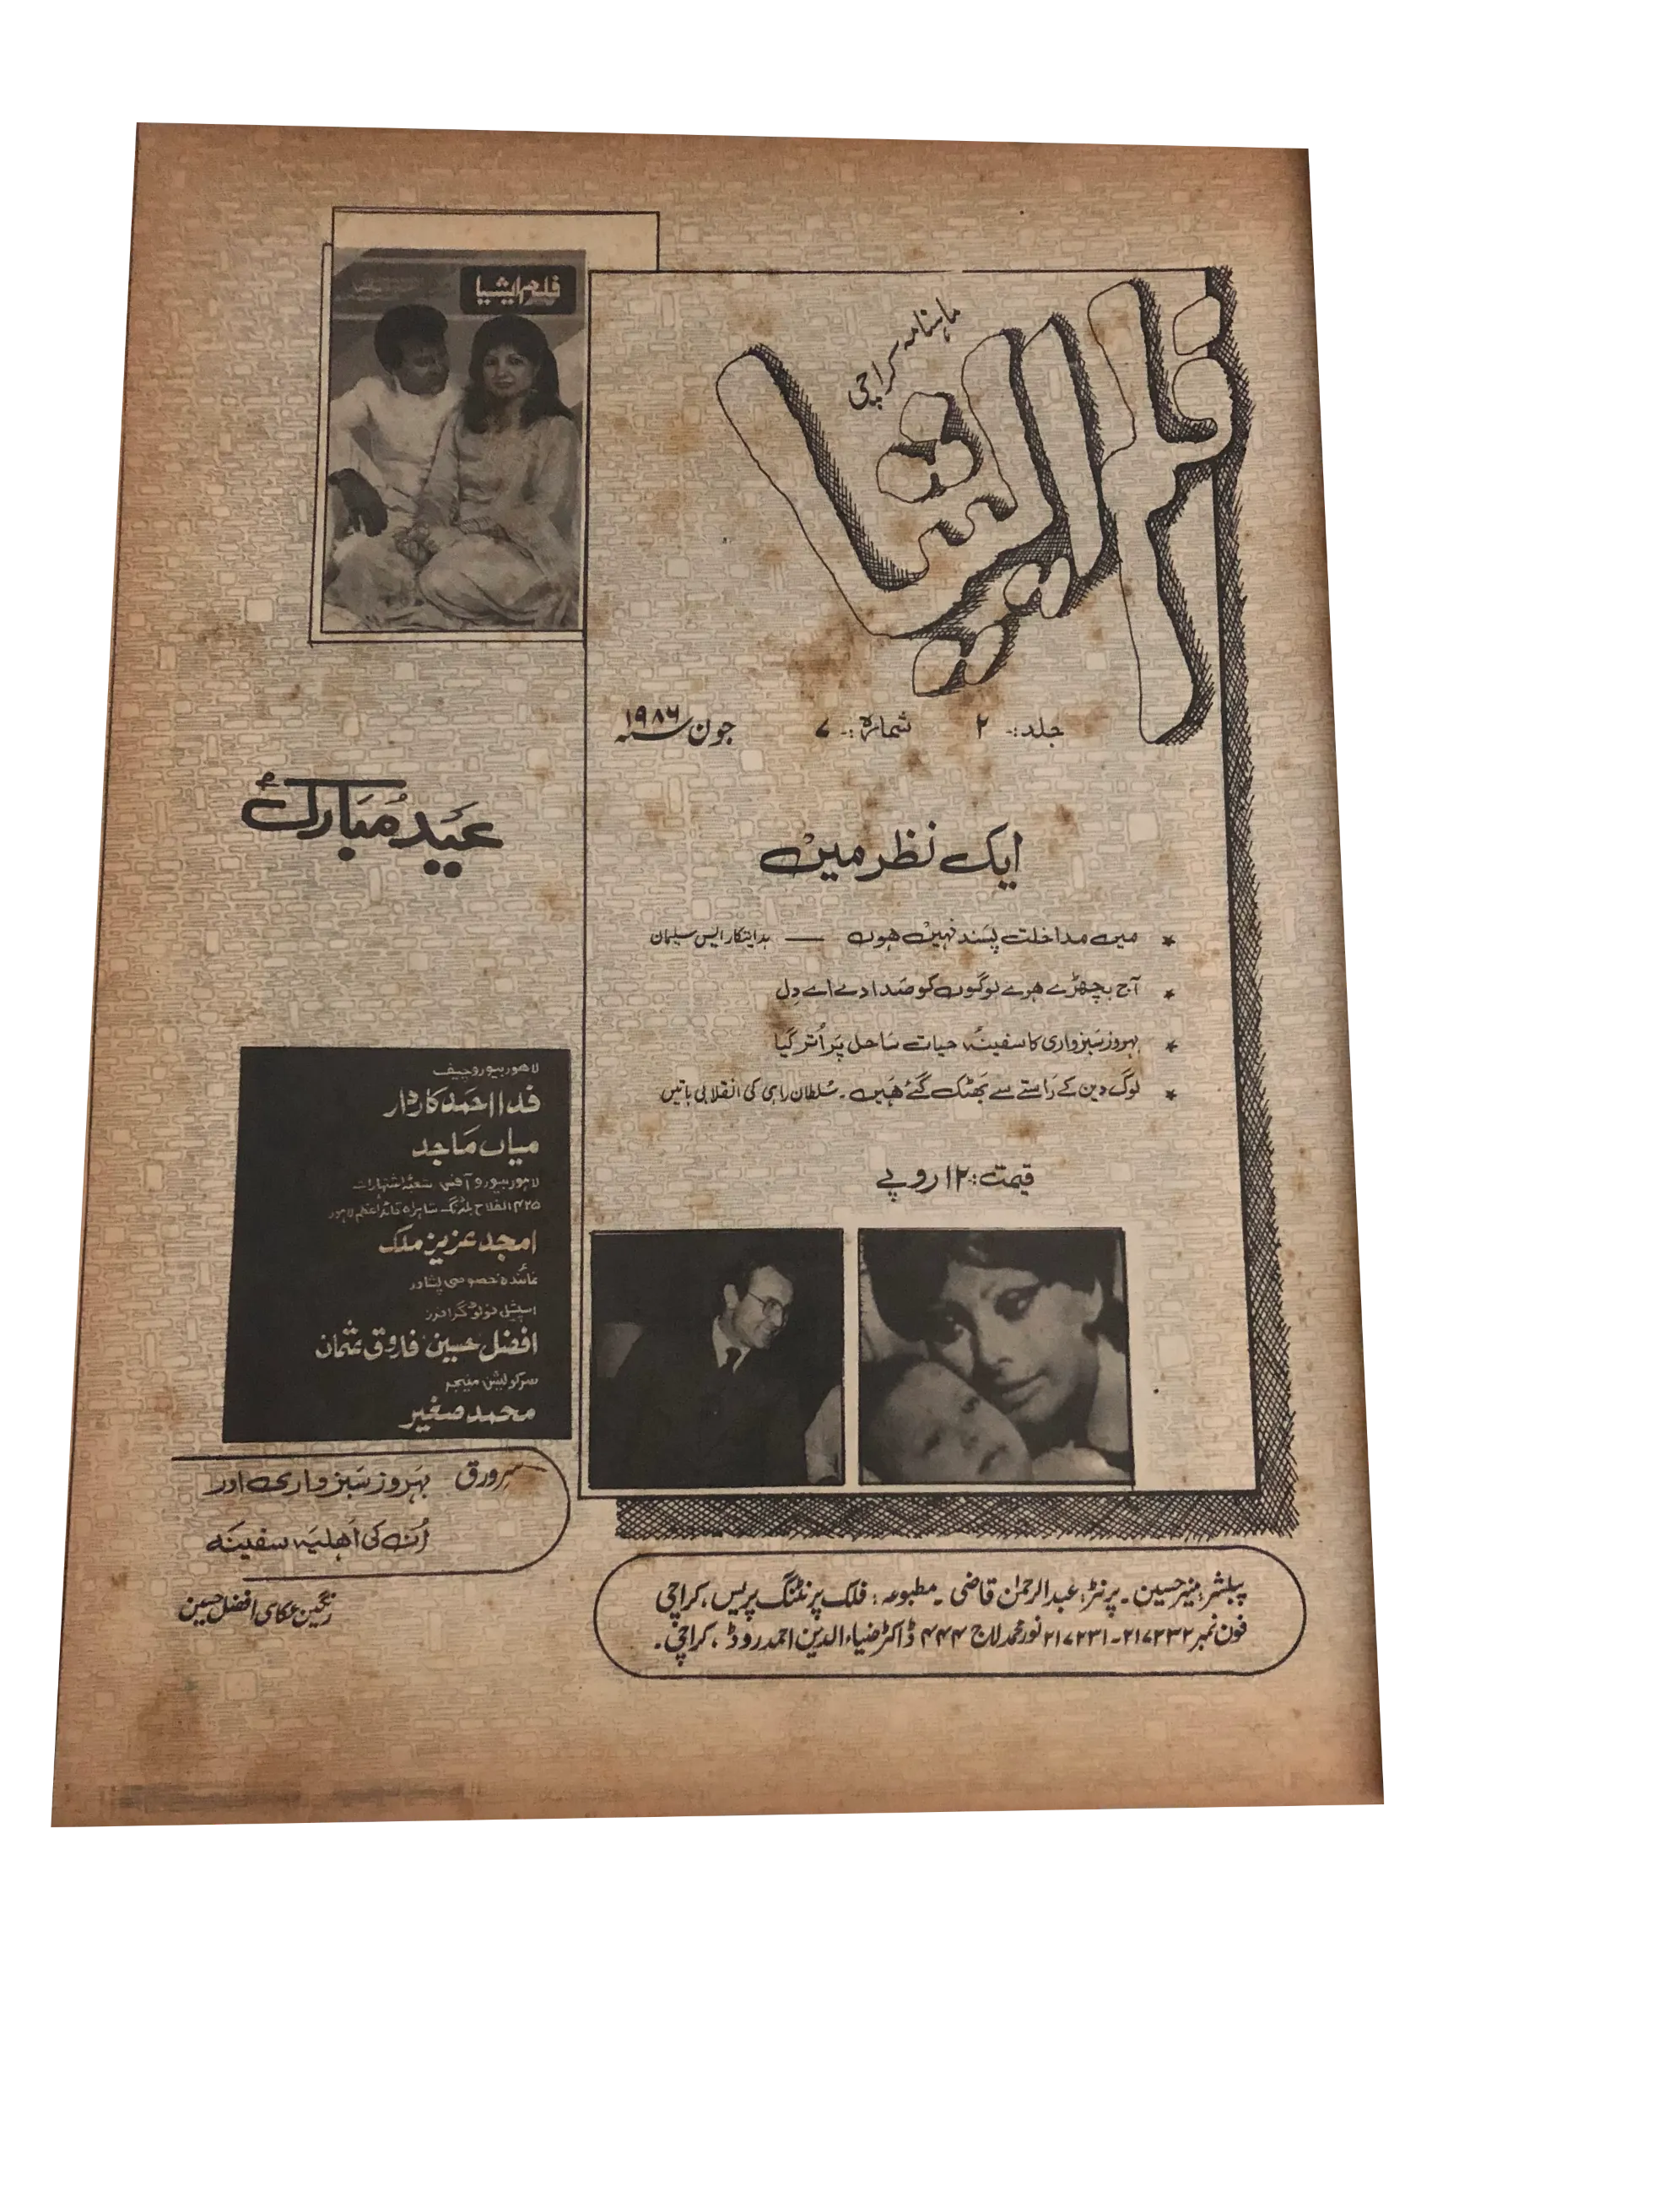 ماہنامہ کراچی
فلم ایشیا
جلد:۔ ۲ شمارہ:۔ ۷ جون ۱۹۸۶ء
ایک نظر میں
★ میں مداخلت پسند نہیں ہوں — ہدایتکار ایس سلیمان
★ آج بچھڑے ہوے لوگوں کو صدا دے اے دل
★ بہروز سبزواری کا سفینۂ حیات ساحل پر اُتر گیا
★ لوگ دین کے راستے سے بھٹک گئے ہیں۔ سُلطان راہی کی انقلابی باتیں
قیمت: ۱۲ روپے
پبلشر: منیر حسین۔ پرنٹر: عبدالرحمٰن قاضی۔ مطبوعہ: فلک پرنٹنگ پریس، کراچی
فون نمبر ۲۱۷۲۳۲۔ ۲۱۷۲۳۱ نور محمد لاج ۴۴۴ ڈاکٹر ضیاءالدین احمد روڈ، کراچی۔
فلم ایشیا
عید مُبارک
لاہور بیورو چیف
فدا احمد کاردار
میاں ماجد
لاہور بیورو آفس شعبۂ اشتہارات
۴۲۵ الفلاح بلڈنگ شاہراہ قائد اعظم لاہور
امجد عزیز ملک
نمائندہ خصوصی پشاور
اسپیشل فوٹو گرافرز
افضل حسین فاروق عثمان
سرکولیشن منیجر
محمد صغیر
سرورق بہروز سبزواری اور
اُن کی اہلیہ سفینہ
رنگین عکاسی افضل حسین